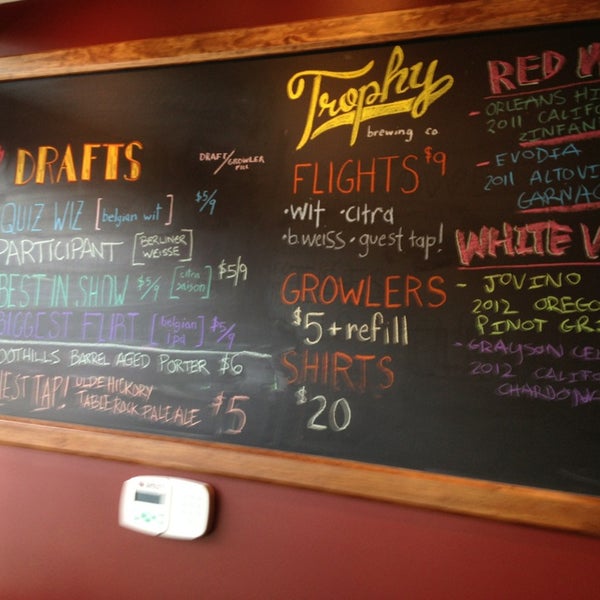 DRAFTS
DRAFT/GROWLER
FILL
QUIZ WIZ [belgian wit] $5/9
PARTICIPANT [BERLINER WEISSE]
BEST IN SHOW $5/9 [citra saison] $5/9
BIGGEST FLIRT [belgian ipa] $5/9
BARREL AGED PORTER $6
TAP! OLDE HICKORY
TABLE ROCK PALE ALE $5
Trophy
brewing co
FLIGHTS $9
·wit ·citra
·b.weiss ·guest tap!
GROWLERS
$5 + refill
SHIRTS
$20
RED
- ORLEANS
2011
- EVODIA
2011
WHITE
- JOVINO
2012
PINOT
- GRAYSON
2012